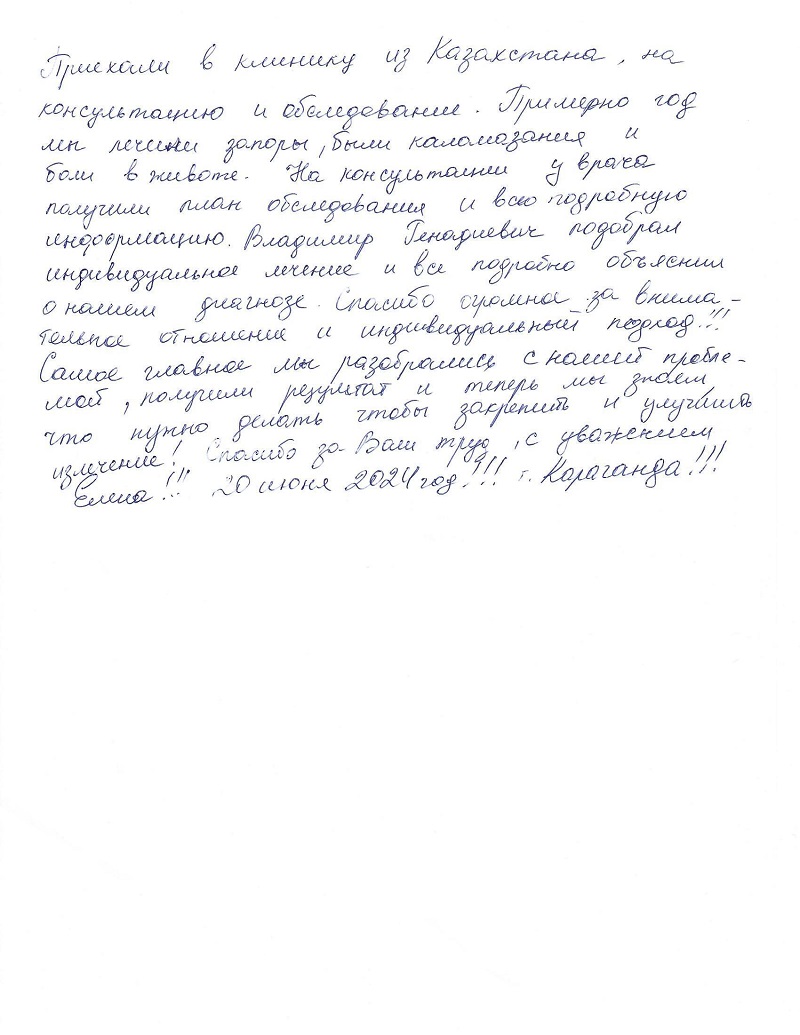 Приехали в клинику из Казахстана, на
консультацию и обследование. Примерно год
мы лечили запоры, были каломазания и
боли в животе. На консультации у врача
получили план обследования и всю подробную
информацию. Владимир Генадиевич подобрал
индивидуальное лечение и все подробно объяснил
о нашем диагнозе. Спасибо огромное за внима-
тельное отношение и индивидуальный подход!!!
Самое главное мы разобрались с нашей пробле-
мой, получили результат и теперь мы знаем
что нужно делать чтобы закрепить и улучшить
излечение! Спасибо за Ваш труд, с уважением
Елена!!! 20 июня 2024 год!!! г. Караганда!!!